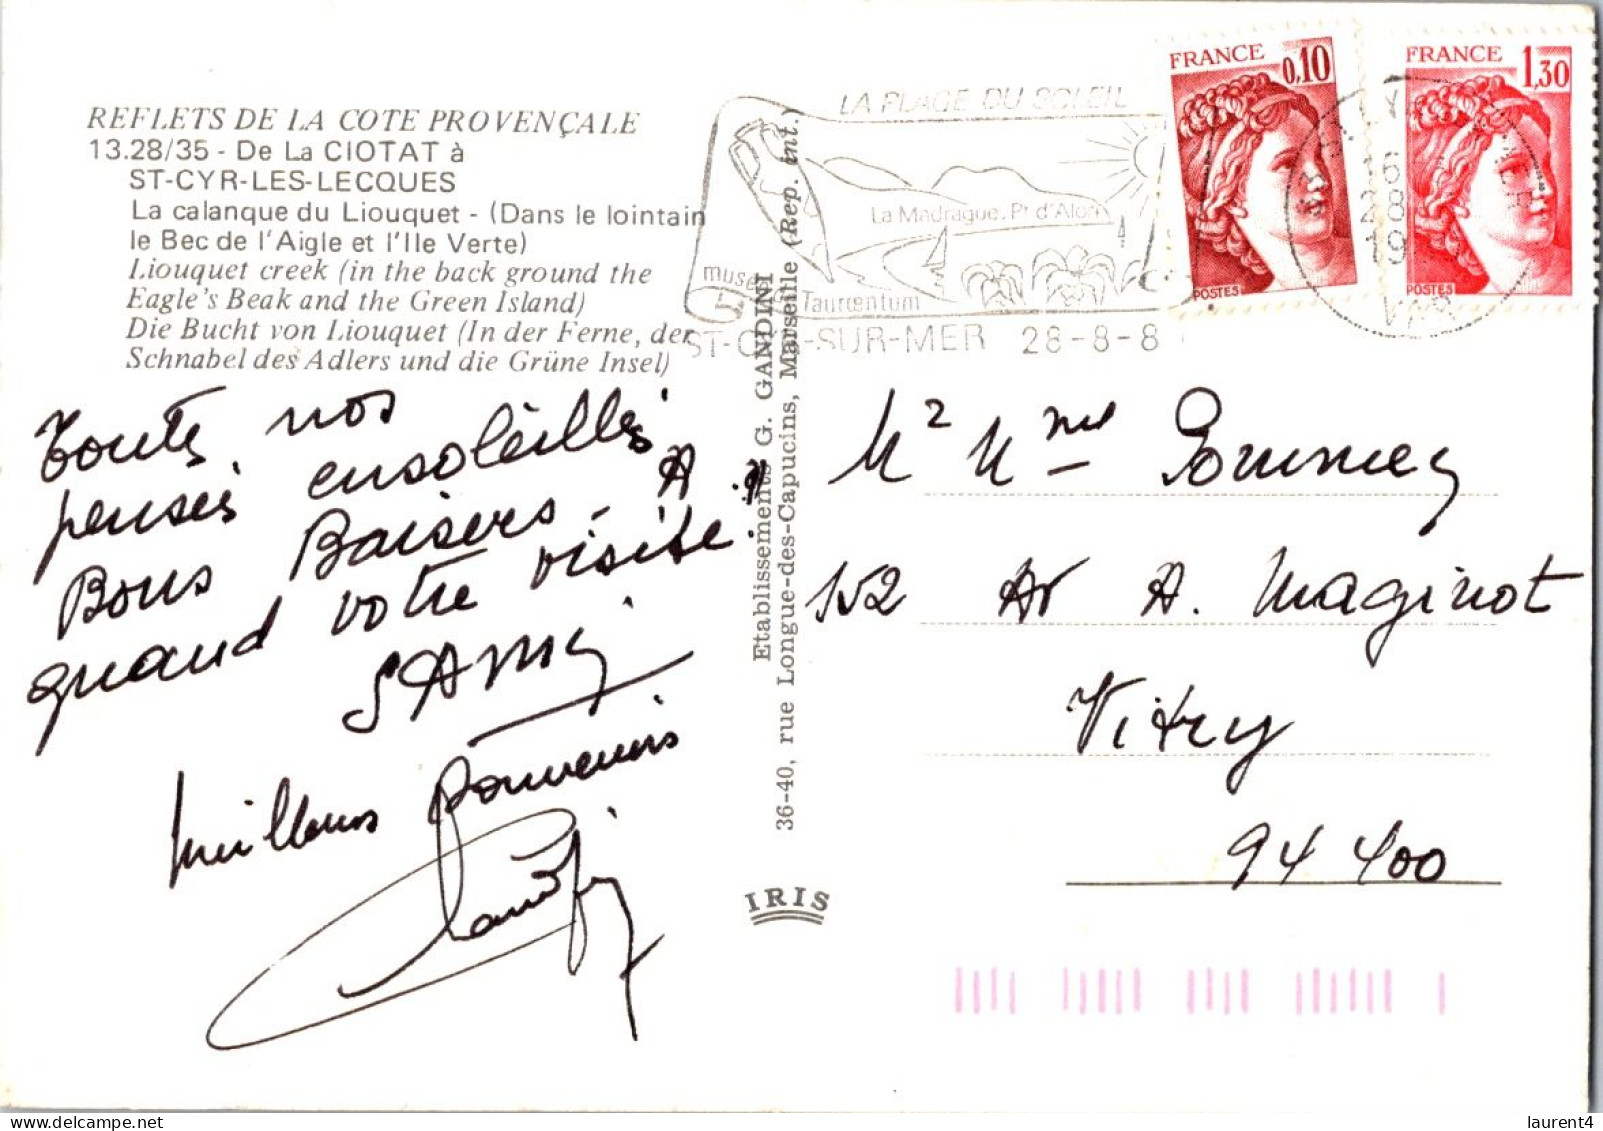 REFLETS DE LA COTE PROVENÇALE
13.28/35 - De La CIOTAT à
ST-CYR-LES-LECQUES
La calanque du Liouquet - (Dans le lointain
le Bec de l'Aigle et l'Ile Verte)
Liouquet creek (in the back ground the
Eagle's Beak and the Green Island)
Die Bucht von Liouquet (In der Ferne, der
Schnabel des Adlers und die Grüne Insel)
Toutes nos
pensés ensoleillés
Bons Baisers - A
quand votre visite.
SAmy
meilleurs souvenirs
Etablissements G. GANDINI
36-40, rue Longue-des-Capucins, Marseille (Rep. int.)
IRIS
LA PLAGE DU SOLEIL
La Madrague. Pt d'Alon
musée
Tauroentum
ST-CYR-SUR-MER 28-8-8
FRANCE
0,10
POSTES
FRANCE
1,30
POSTES
16
28
19
VAR
152 Av A. Maginot
Vitry
94 400
laurent4